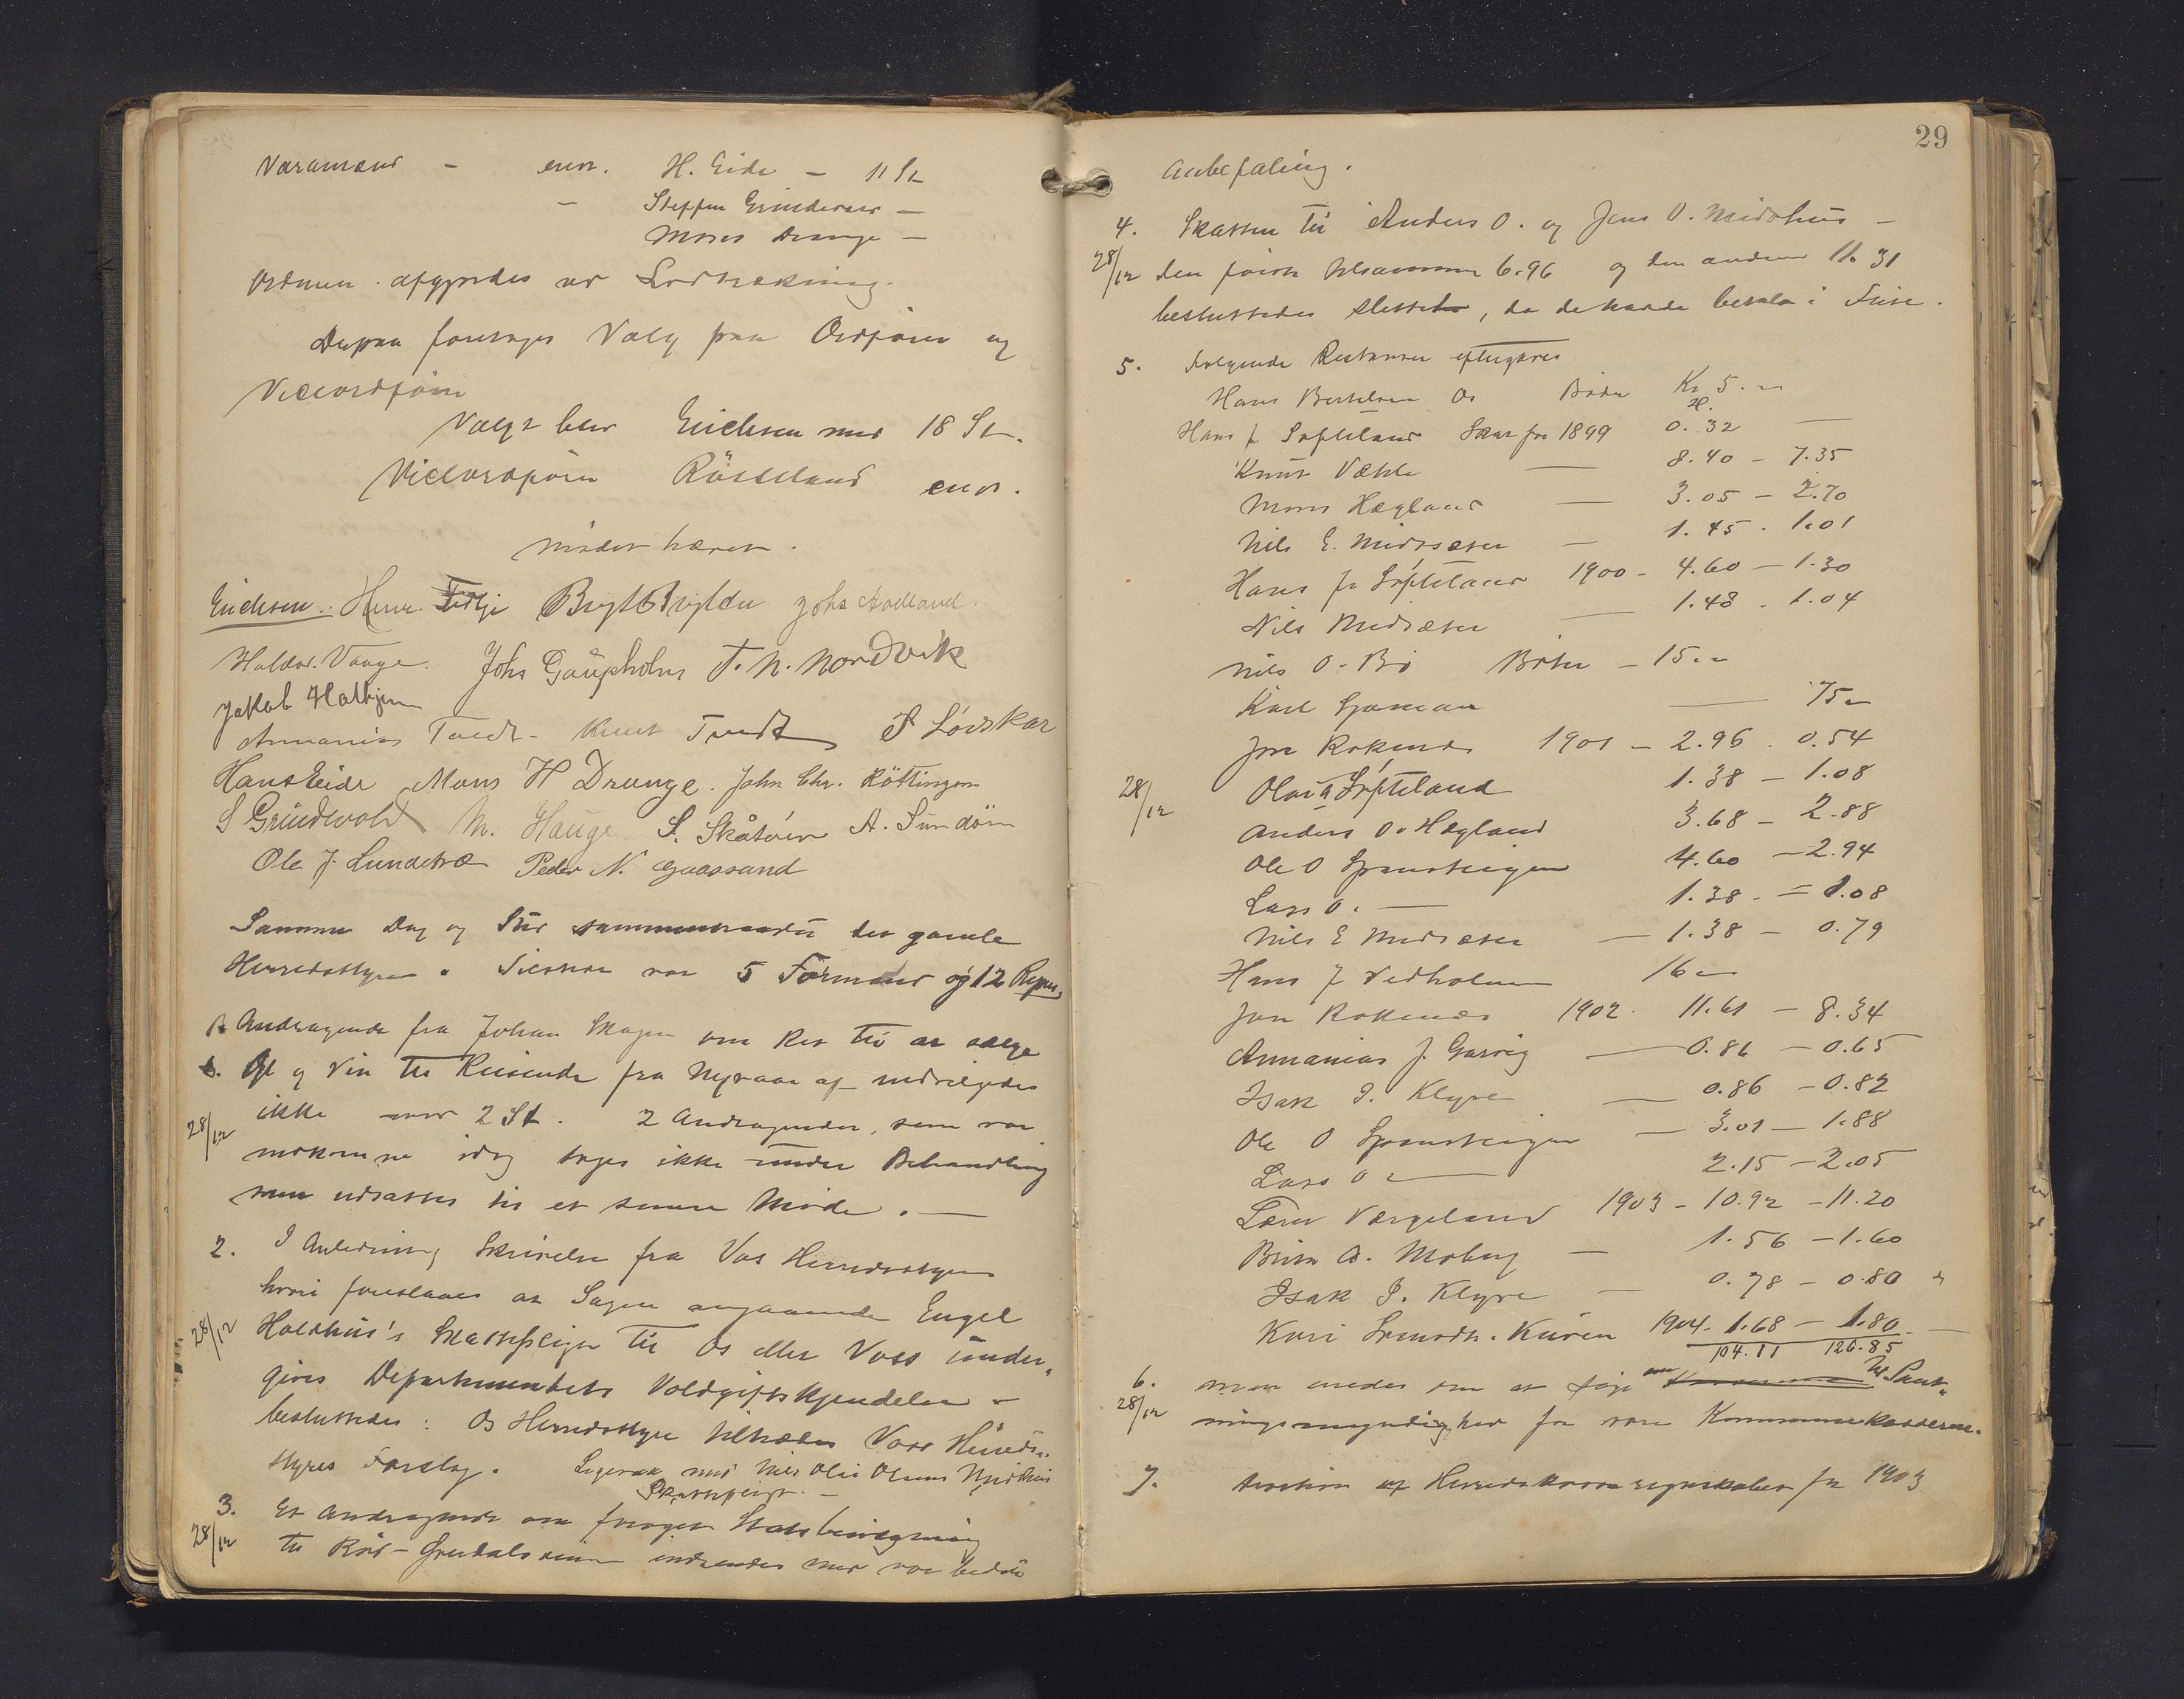 Varamænd - enst. H. Eide - 11 St
- Steffen Grindevold -
Mons Drange -
Ordenen afgjordes ved Lodtrækning.
Derpaa foretoges Valg paa Ordfører og
Viceordfører
Valgt blev Erichsen med 18 St.
Viceordfører Røtteland enst.
Mødet hævet.
Erichsen. Henr. Brigt Johs Aadland
Haldor Vaage. Johs Gaupholm T. N. Nordvik
Jakob Hatvjen
Annanias Tveit - Knut Tveit P Lørskar
Hans Eide Mons H Drange. John Chr. Røttingen
S Grindevold M. Hauge S. Skåtöin A. Sundöin
Ole J. Lundetræ Peder N. Gaassand
Samme Dag og Stid det gamle
Herredsstyre. Tilstede var 5 Formænd og 12 Repræs.
1. Andragende fra Johan Skogen om Ret til at sælge
Øl og Vin til Reisende fra Nytaar af indvilgedes
28/12 ikke mod 2 St. 2 Andragender, som var
indkomne idag toges ikke under Behandling
men udsattes til et senere Møde.
2. I Anledning Skrivelse fra Vos Herredsstyre
hvori foreslaaes at Sagen angaaende Engel
28/12 Holdhus's Skattepligt til Os eller Voss under-
gives Departementets Voldgiftskjendelse -
besluttedes: Os Herredsstyre tiltræder Voss Herreds-
styres Forslag. Ligesaa med Nils Olai Olsens Midthus
Skattepligt. -
3. Et Andragende om forøget Statsbevilgning
28/12 til - indsendes med vor bedste
29
Anbefaling.
4. Skatten til Anders O. og Jens O. Midthus -
28/12 den første tilsammen 6.96 og den anden 11.31
besluttedes slettet, da de havde betalt i Fuse.
5. Følgende Restancer eftergives
Hans Bertelsen Os Bøder Kr 5. -
Hans J Søfteland Skat for 1899 0.32 —
Knut Vætle — 8.40 - 7.35
Mons Hegland — 3.05 - 2.70
Nils E. Midtsæter — 1.45 - 1.01
Hans J. Søfteland 1900 - 4.60 - 1.30
Nils Midtsæter — 1.48 - 1.04
Nils O. Bø Bøter - 15. -
Karl — 75 -
Jon Røkenes 1901 - 2.96 - 0.54
28/12 Olai Søfteland 1.38 - 1.08
Anders O. Hegland 3.68 - 2.88
Ole O 4.60 - 2.94
Lars O. — 1.38 - 1.08
Nils E Midtsæter — 1.38 - 0.79
Hans J Vedholmen 16 -
Jon Røkenes 1902. 11.61 - 8.34
Annanias J. Gasvig — 0.86 - 0.65
Isak I. Klyve — 0.86 - 0.82
Ole O — 3.01 - 1.88
Lars O — 2.15 - 2.05
Værgeland 1903 - 10.92 - 11.20
Moberg — 1.56 - 1.60
Isak I. Klyve — 0.78 - 0.80
Kari Kuven 1904 - 1.68 - 1.80 -
104.11 126.85
6. Man enedes om at søge om Pant-
28/12 ningsmyndighed for vor Kommunekasserer.
7. Decision af Herredskasseregnskabet for 1903